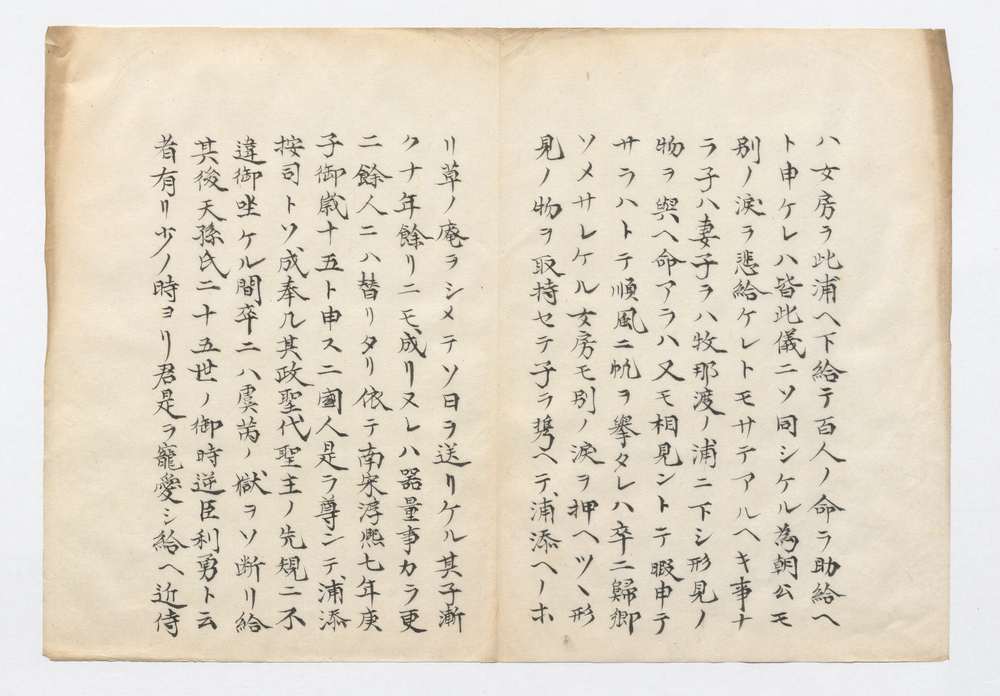 ハ女房ヲ此浦ヘ下給テ百人ノ命ヲ助給ヘ
ト申ケレハ皆此儀ニソ同シケル為朝公モ
別ノ淚ヲ悲給ケレトモサテアルヘキ事ナ
ラ子ハ妻子ヲハ牧那渡ノ浦ニ下シ形見ノ
物ヲ與ヘ命アラハ又モ相見ントテ暇申テ
サラハトテ順風ニ帆ヲ擧タレハ卒ニ歸卿
ソメサレケル女房モ別ノ淚ヲ押ヘツヽ形
見ノ物ヲ取持セテ子ヲ携ヘテ浦添ヘノホ
リ草ノ庵ヲシメテソ日ヲ送リケル其子漸
クナ年餘リニモ成リヌレハ器量事カラ更
ニ餘人ニハ替リタリ依テ南宋淳熙七年庚
子御歳十五ト申スニ國人是ヲ尊シテ浦添
按司トソ成奉凡其政聖代聖主ノ先規ニ不
違御坐ケル間卒ニハ虞芮ノ獄ヲソ断リ給
其後天孫氏二十五世ノ御時逆臣利勇ト云
者有リ少ノ時ヨリ君是ヲ寵愛シ給ヘ近侍